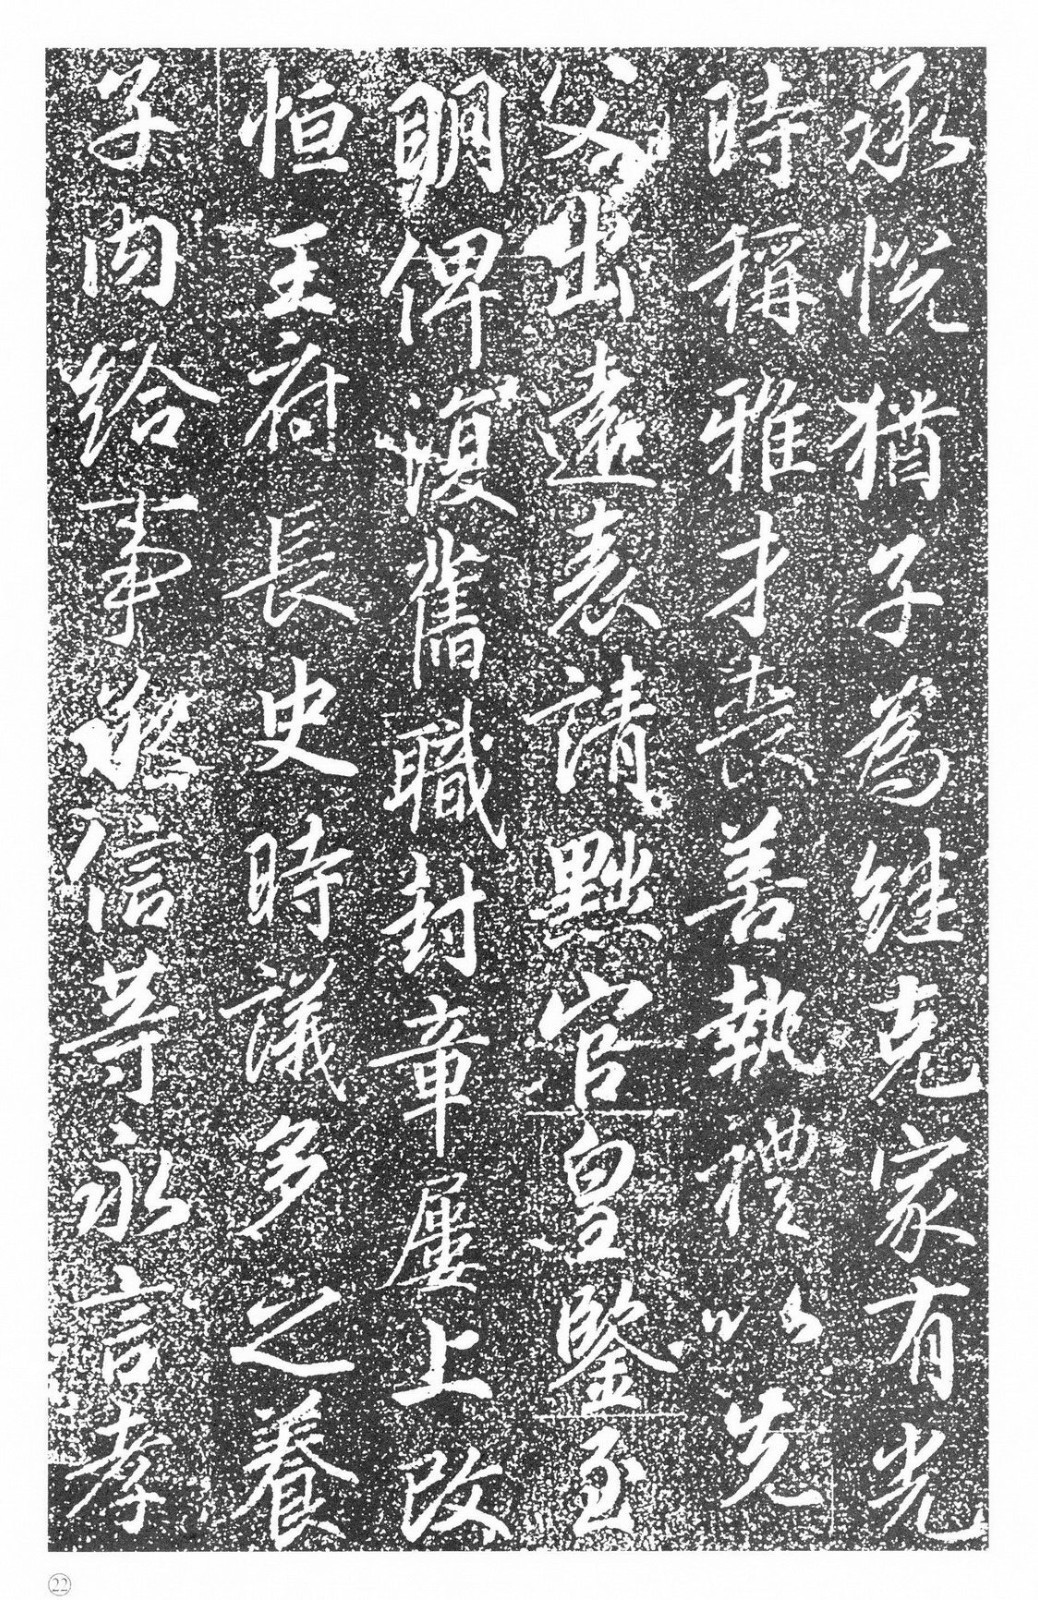 承悅猶子為繼克家有光
時稱雅才喪善執禮以先
父出遠表請黜官皇鑒至
明俾復舊職封章屢上改
恒王府長史時議多之養
子內給事承信等永言孝
22